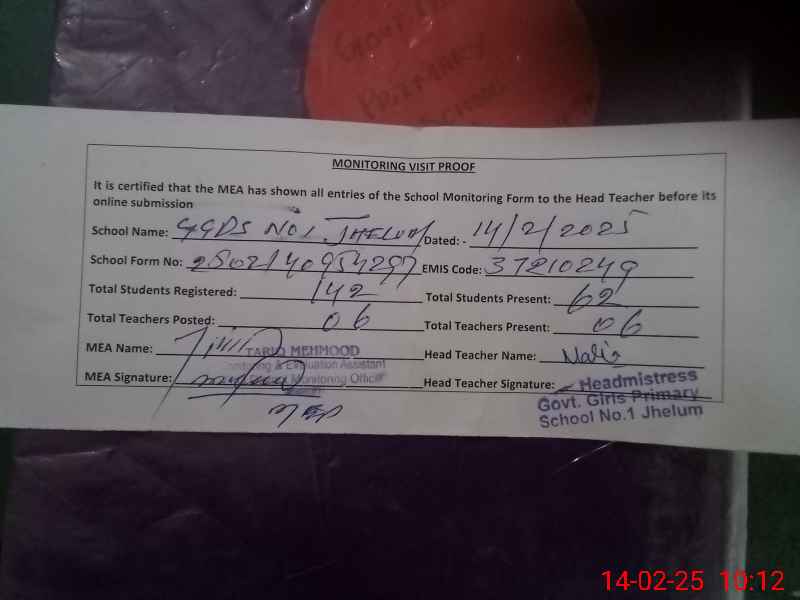 GOVT.
PRIMARY
MONITORING VISIT PROOF
It is certified that the MEA has shown all entries of the School Monitoring Form to the Head Teacher before its
online submission
School Name: GGPS No1 JHELUM Dated: - 14/2/2025
School Form No: EMIS Code: 37210249
Total Students Registered: 142 Total Students Present: 62
Total Teachers Posted: 06 Total Teachers Present: 06
MEA Name: TARIQ MEHMOOD Head Teacher Name:
Monitoring & Evaluation Assistant
Monitoring Officer
MEA Signature: Head Teacher Signature: Headmistress
Govt. Girls Primary
School No.1 Jhelum
14-02-25 10:12